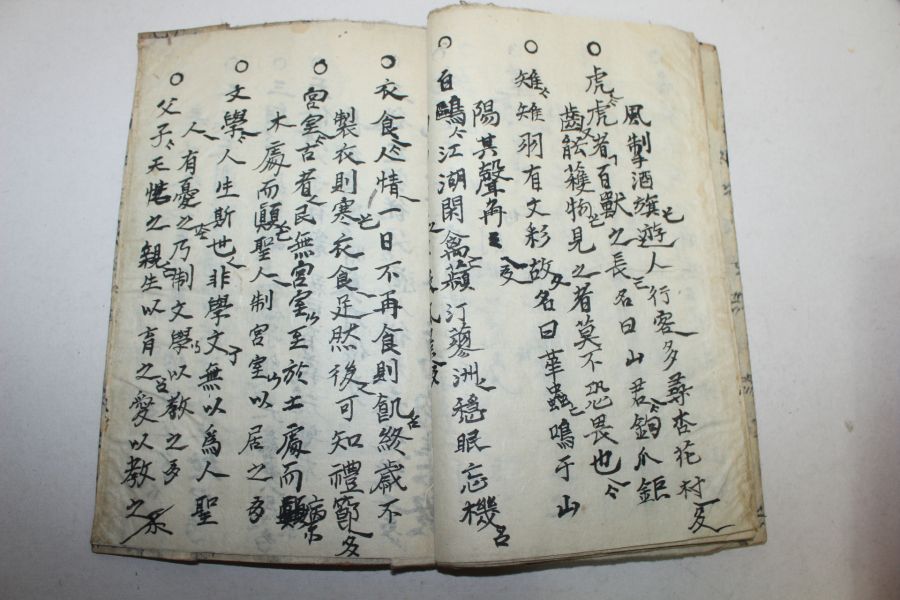 風掣酒旗遊人行客多尋杏花村
虎虎者百獸之長名曰山君鉤爪鉅
齒能攫物見之者莫不恐畏也
雉雉羽有文彩故名曰華蟲鳴于山
陽其聲角
白鷗江湖閑禽蘋汀蓼洲穩眠忘機
衣食人情一日不再食則飢終歲不
製衣則寒衣食足然後可知禮節
宮室古者民無宮室至於土處而
木處而顚聖人制宮室以居之
文學人生斯世非學文無以爲人聖
人有憂之乃制文學以敎之
父子天性之親生以育之愛以敎之